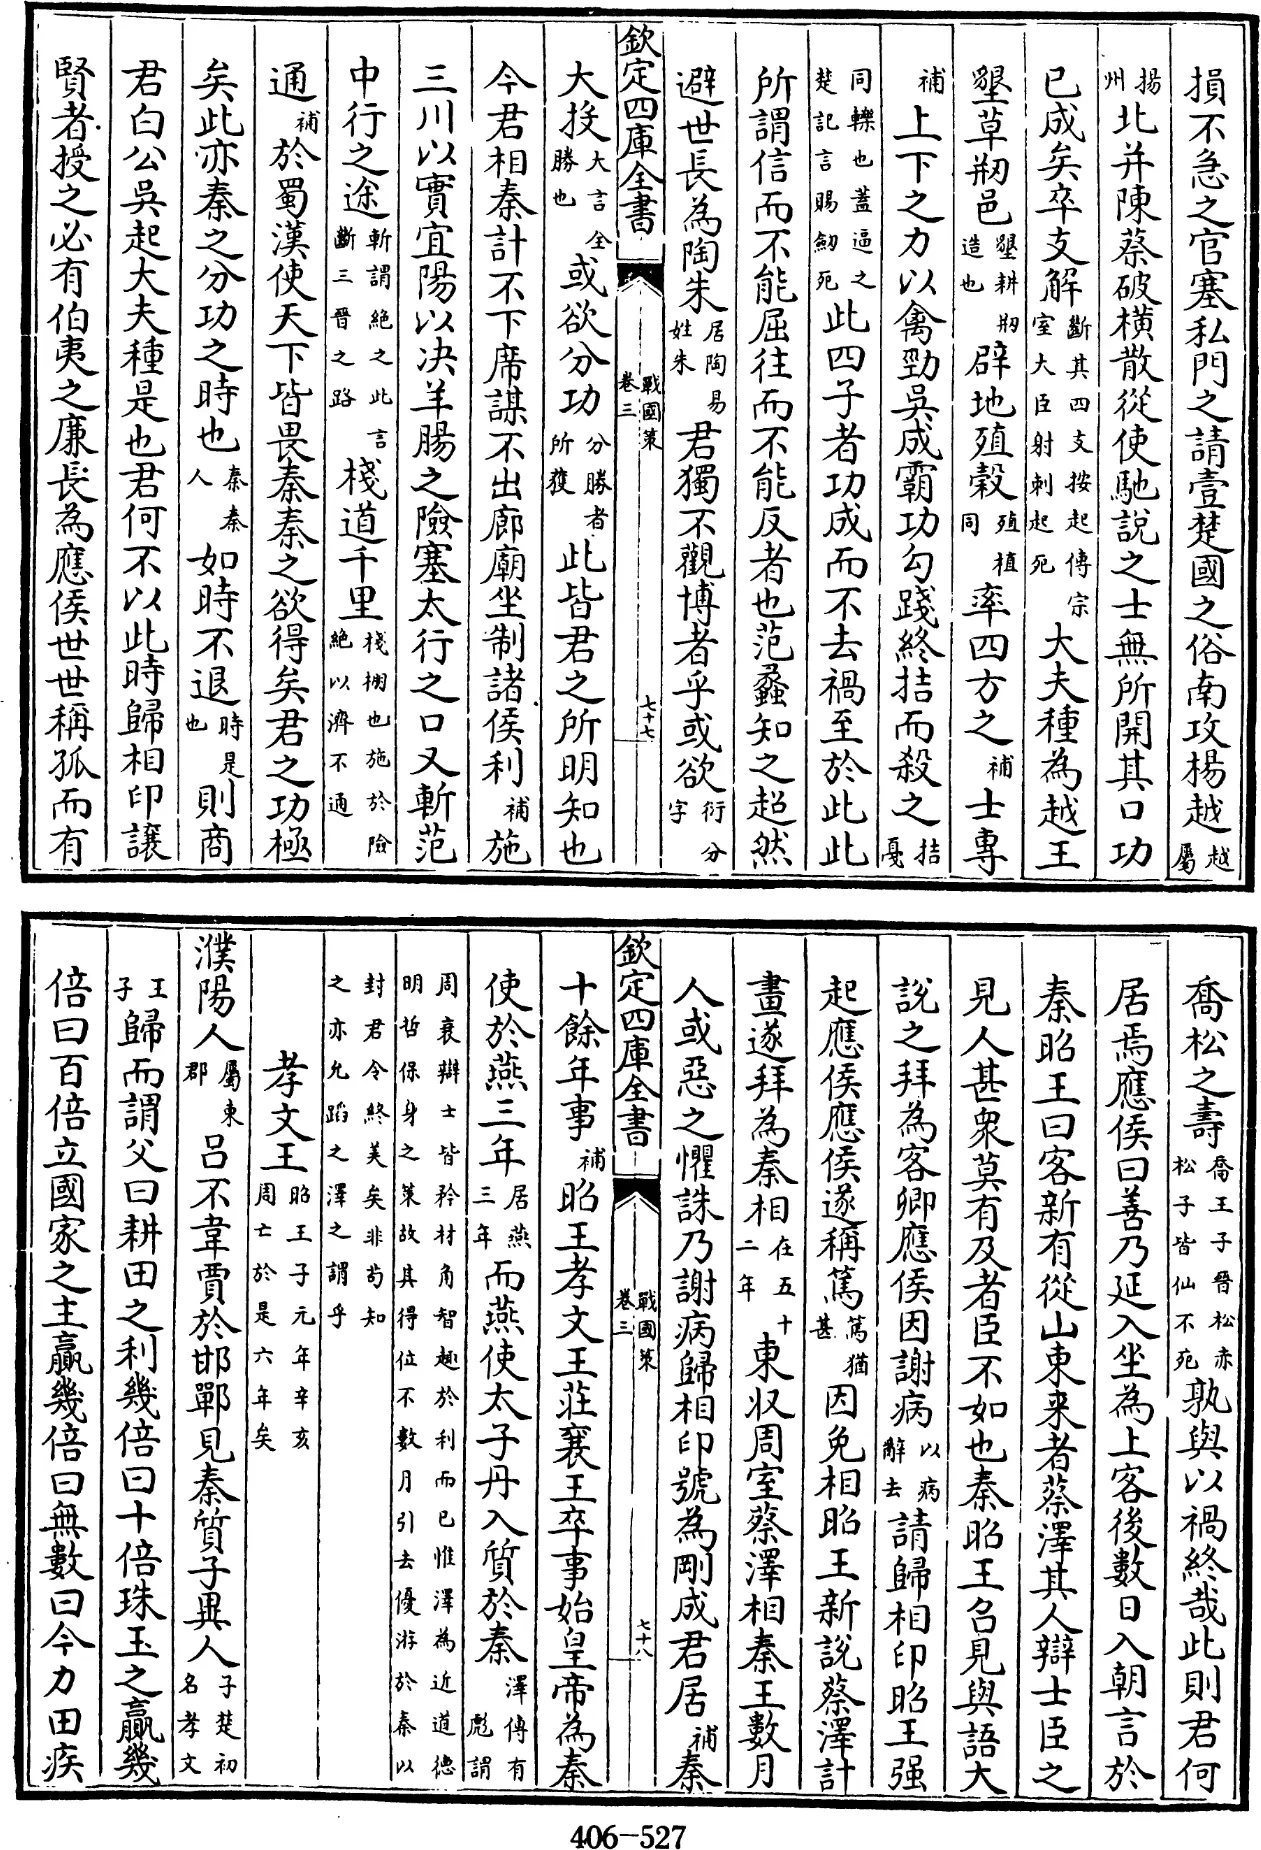 損不急之官塞私門之請壹楚國之俗南攻楊越越屬
揚州北并陳蔡破橫散從使馳說之士無所開其口功
已成矣卒支解斷其四支按起傳宗室大臣射刺起死大夫種為越王
墾草剏邑墾耕剏造也辟地殖穀殖植同率四方之補士專
補上下之力以禽勁吳成霸功勾踐終拮而殺之拮戛
同轢也蓋逼之楚記言賜劎死此四子者功成而不去禍至於此此
所謂信而不能屈往而不能反者也范蠡知之超然
避世長為陶朱居陶易姓朱君獨不觀博者乎或欲衍分字
欽定四庫全書
戰國策卷三
七十七
大投大言全勝也或欲分功分勝者所獲此皆君之所明知也
今君相秦計不下席謀不出廊廟坐制諸侯利補施
三川以實宜陽以决羊腸之險塞太行之口又斬范
中行之途斬謂絶之此言斷三晉之路棧道千里棧棚也施於險絶以濟不通
通補於蜀漢使天下皆畏秦秦之欲得矣君之功極
矣此亦秦之分功之時也秦秦人如時不退時是也則商
君白公吳起大夫種是也君何不以此時歸相印讓
賢者授之必有伯夷之廉長為應侯世世稱孤而有
喬松之壽喬王子晉松赤松子皆仙不死孰與以禍終哉此則君何
居焉應侯曰善乃延入坐為上客後數日入朝言於
秦昭王曰客新有從山東来者蔡澤其人辯士臣之
見人甚衆莫有及者臣不如也秦昭王召見與語大
說之拜為客卿應侯因謝病以病辭去請歸相印昭王强
起應侯應侯遂稱篤篤猶甚因免相昭王新說蔡澤計
畫遂拜為秦相在五十二年東収周室蔡澤相秦王數月
人或惡之懼誅乃謝病歸相印號為剛成君居補秦
欽定四庫全書
戰國策卷三
七十八
十餘年事補昭王孝文王莊襄王卒事始皇帝為秦
使於燕三年居燕三年而燕使太子丹入質於秦澤傳有彪謂
周衰辯士皆矜材角智趣於利而已惟澤為近道德明哲保身之策故其得位不數月引去優游於秦以
封君令終美矣非苟知之亦允蹈之澤之謂乎
孝文王昭王子元年辛亥周亡於是六年矣
濮陽人屬東郡呂不韋賈於邯鄲見秦質子異人子楚初名孝文
王子歸而謂父曰耕田之利幾倍曰十倍珠玉之贏幾
倍曰百倍立國家之主贏幾倍曰無數曰今力田疾
406-527